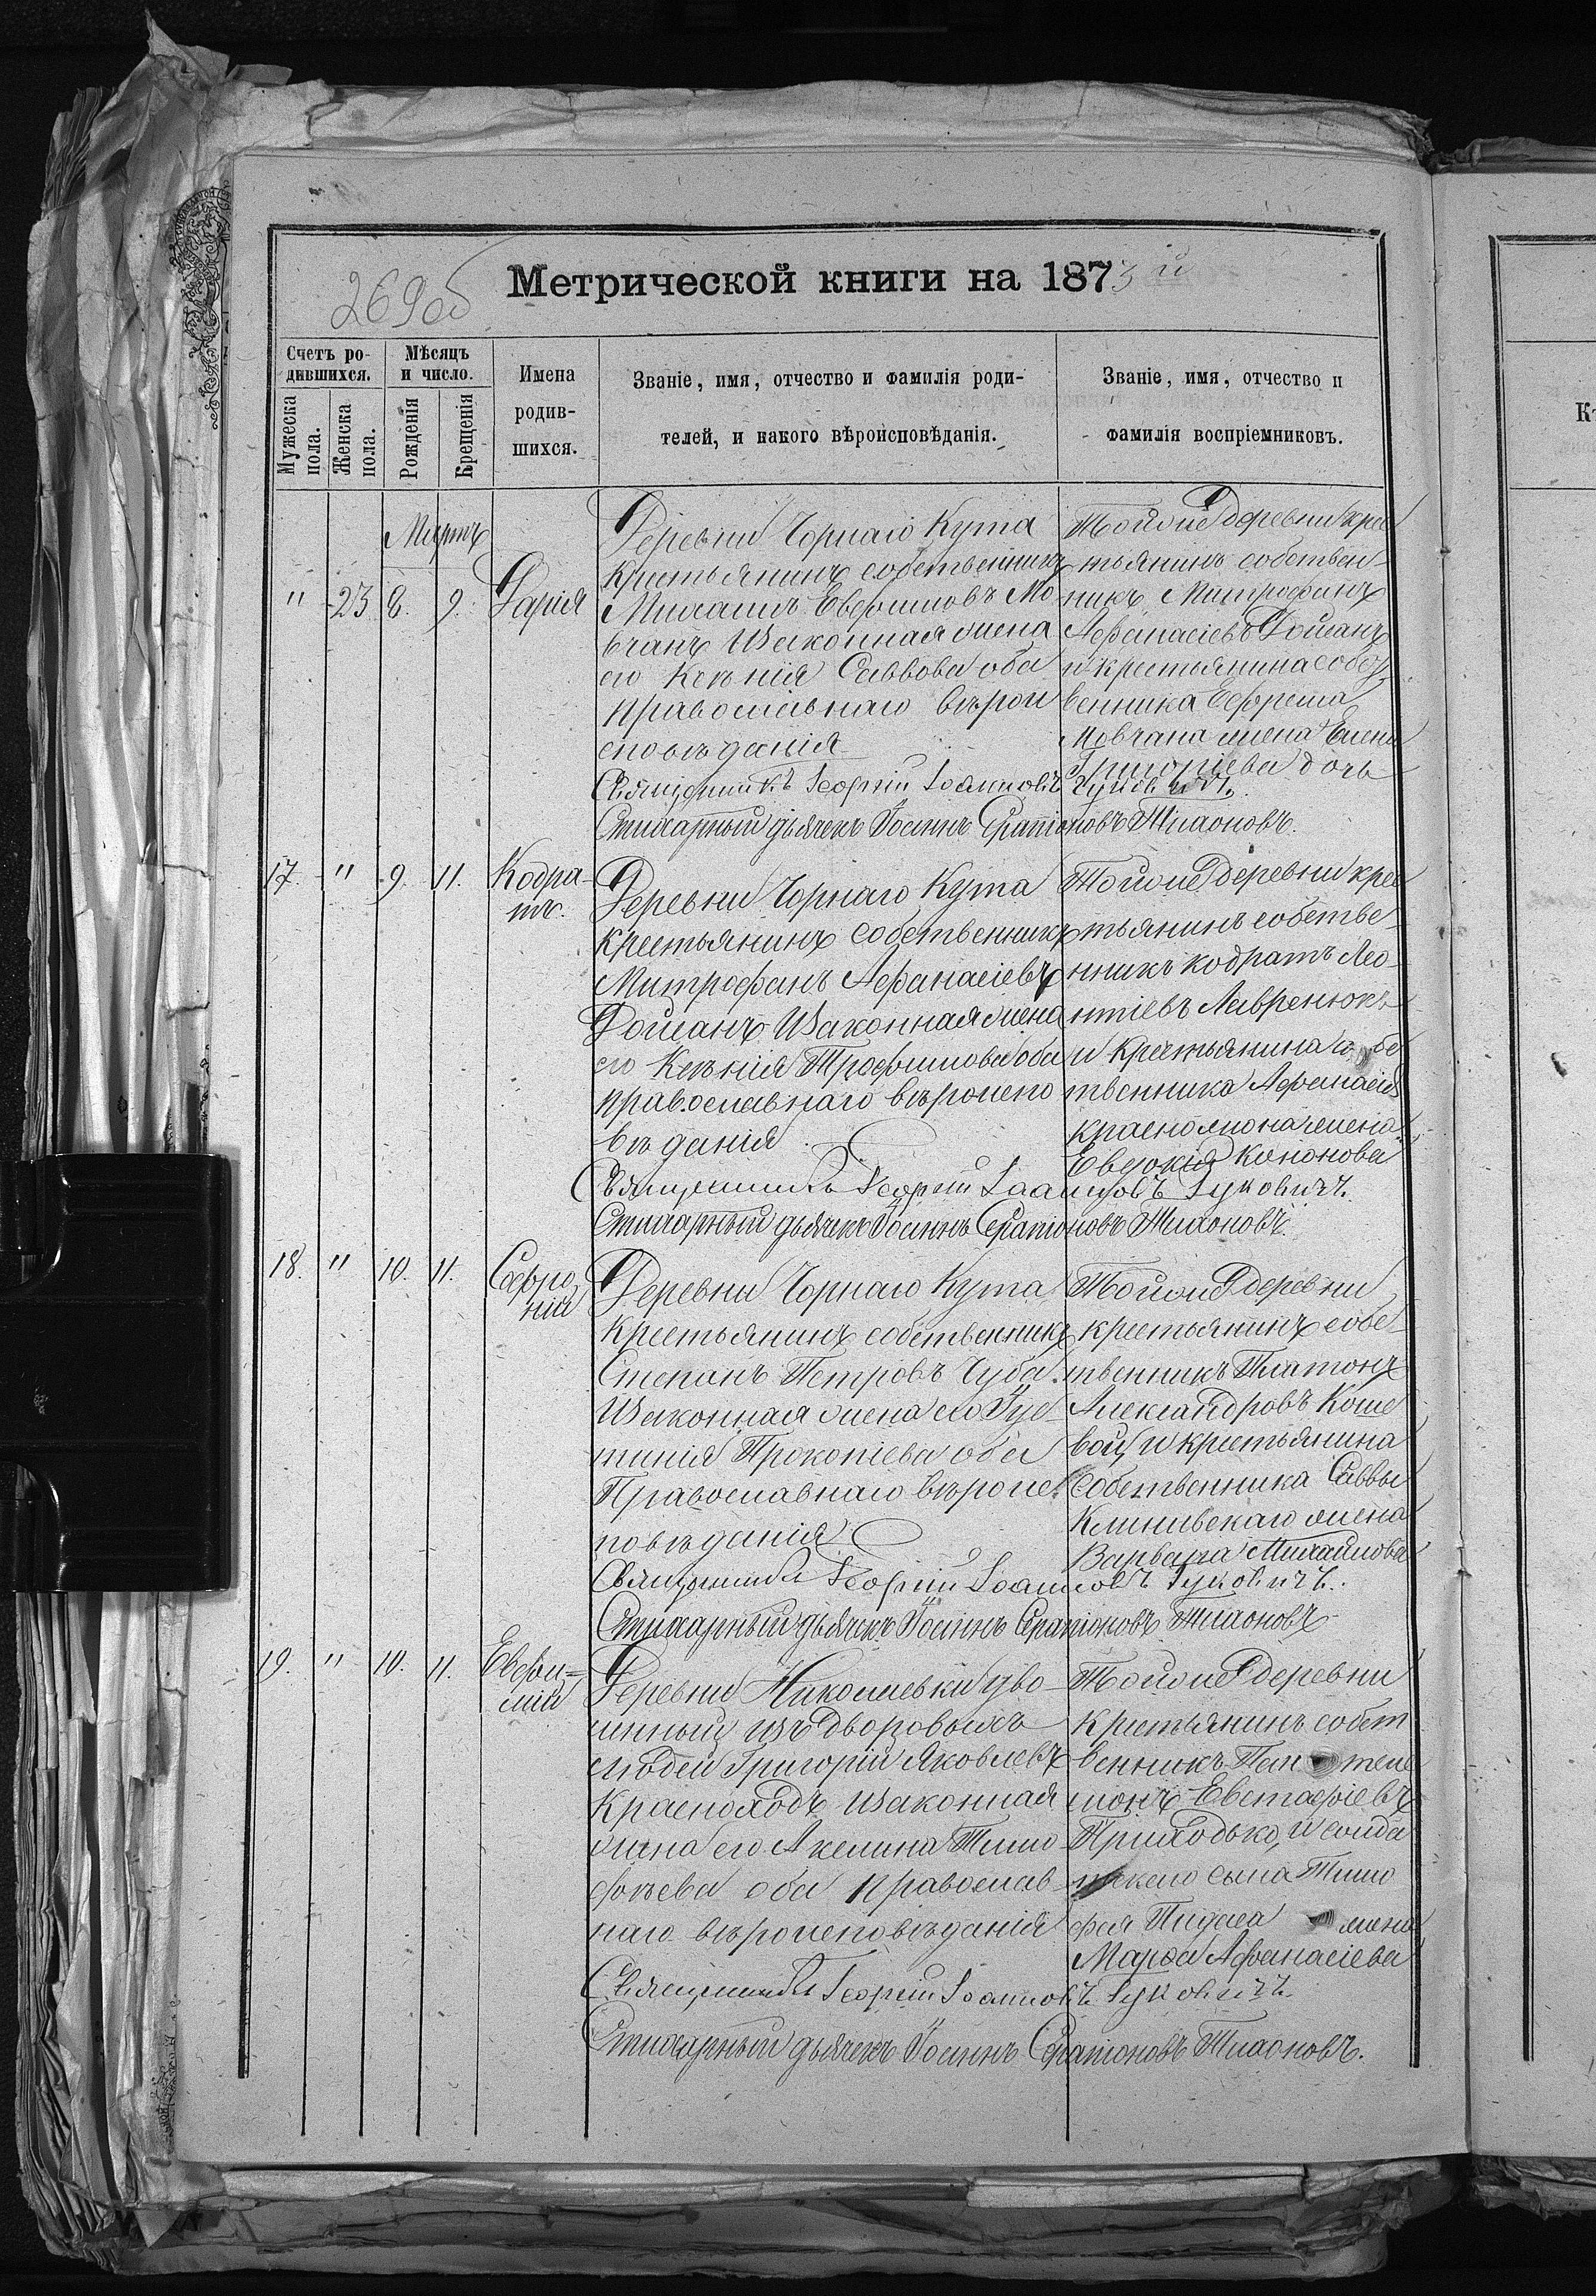 269об
Метрической книги на 1873 й
Счетъ ро-
дившихся.
Мужеска
пола.
Женска
пола.
Мѣсяцъ
и число.
Рожденія
Крещенія
Имена
родив-
шихся.
Званіе, имя, отчество и фамилія роди-
телей, и какого вѣроисповѣданія.
Званіе, имя, отчество и
фамилія воспріемниковъ.
Мартъ
" 23 8. 9. Дарія
Деревни Чорнаго Кута
крестьянинъ собственникъ
Михаилъ Евфимовъ Мо
вчанъ Изаконная жена
его Ксѣнія Саввова оба
православнаго вѣрои
сповѣданія
Тойже деревни крес
тьянинъ собствен-
никъ Митрофанъ
Афанасіевъ Доманъ
и крестьянина собст
венника Ефрема
Мовчана жена Елена
Григоріева дочь
Священникъ Георгій Іоанновъ
Стихарный дьячекъ Іоаннъ Серапіоновъ Тихоновъ.
17. " 9. 11. Кодра-
тъ.
Деревни Чорнаго Кута
крестьянинъ собственникъ
Митрофанъ Афанасіевъ
Доманъ Изаконная жена
его Ксѣнія Трофимова оба
православнаго вѣроиспо
вѣданія
Тойже деревни крес
тьянинъ собстве-
нникъ кодратъ Лео-
нтіевъ Лавренюкъ
и крестьянина собс
твенника Афанасія
жена
Евдокія Кононова
Священникъ Георгій Іоанновъ Гуковичъ.
Стихарный дьячекъ Іоаннъ Серапіоновъ Тихоновъ.
18. " 10. 11. Софро
ній
Деревни Чорнаго Кута
Крестьянинъ собственникъ
Степанъ Петровъ Чуба.
Изаконная жена его Іус-
тинія Прокопіева оба
Православнаго вѣроис
повѣданія
Тойже деревни
крестьянинъ собс-
твенникъ Платонъ
Александровъ Коше
вой, и крестьянина
Собственника Саввы
Клинивскаго жена
Варвара Михайлова
Священникъ Георгій Іоанновъ Гуковичъ.
Стихарный дьячекъ Іоаннъ Серапіоновъ Тихоновъ
19. " 10. 11. Евфи=
мій
Деревни Николаевки уво-
лнный изъ Дворовыхъ
людей Григорій Яковлевъ
Красноходъ Изаконная
жена его Акелина Тимо
фѣева оба православ-
наго вѣроисповѣданія
Тойже деревни
крестьянинъ собст
венникъ Пантеле
монъ Евстафіевъ
Приходько, и солда
тскаго сына Тимо
фея жена
Марѳа Афанасіева
Священникъ Георгій Іоанновъ Гуковичъ.
Стихарный дьячекъ Іоаннъ Серапіоновъ Тихоновъ.